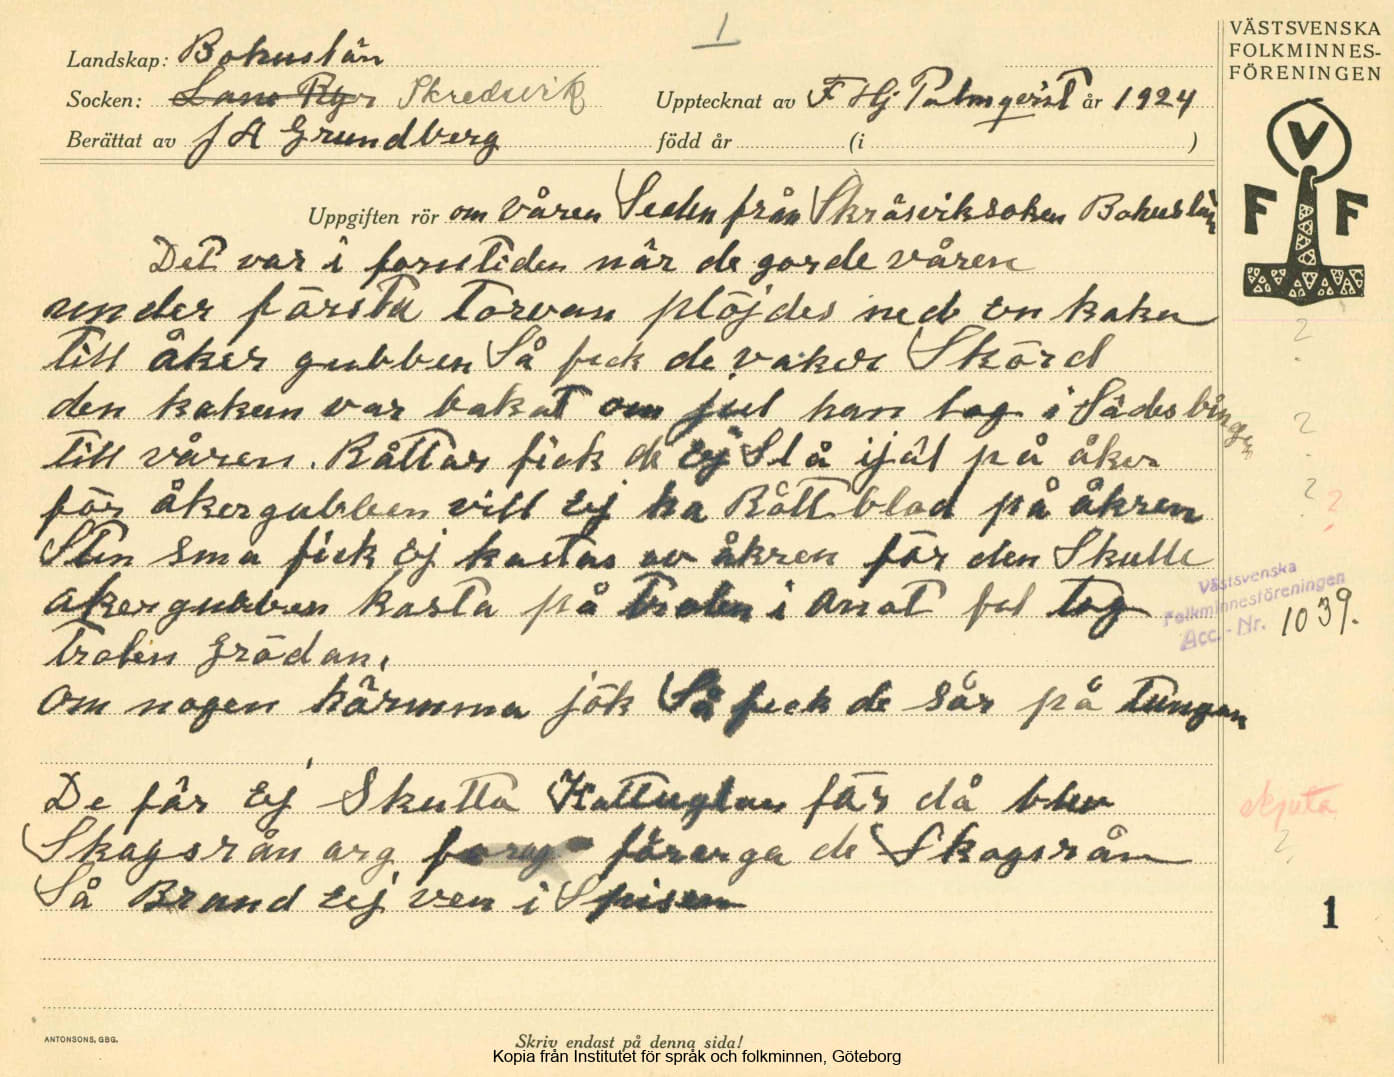 1
VÄSTSVENSKA
FOLKMINNES-
FÖRENINGEN
Landskap: Bohuslän
Socken: Lane Ryr Skredsvik
Upptecknat av F Hj Palmqvist år 1924
Berättat av J A Grundberg
född år (i )
V
F F
Uppgiften rör om våren Seden från Skråsviksoken Bohuslän
Det var i forntiden när de gorde våren
under första torvan plöjdes ned en kaka
till åker gubben Så fick de vaker Skörd
den kakan var bakat om jul han lag i Sädesbingen
till våren. Råttar fick de Ej Slå ijäl på åker
för åkergubben vill Ej ha Rått blod på åkren
Sten sma fick Ej kastas av åkren för den Skulle
akergubben kasta på trolen i anat fal tog
trolen Grödan.
om nogen härmma jök Så feck de sår på tungan
De får Ej Skutta Kattuglan får då blev
Skagsrån arg förerga de Skogsrån
Så Brand Ej ven i Spisen
?
?
?
?
Västsvenska
Folkminnesföreningen
Acc.-Nr. 1039.
skjuta
?
1
ANTONSONS, GBG.
Skriv endast på denna sida!
Kopia från Institutet för språk och folkminnen, Göteborg